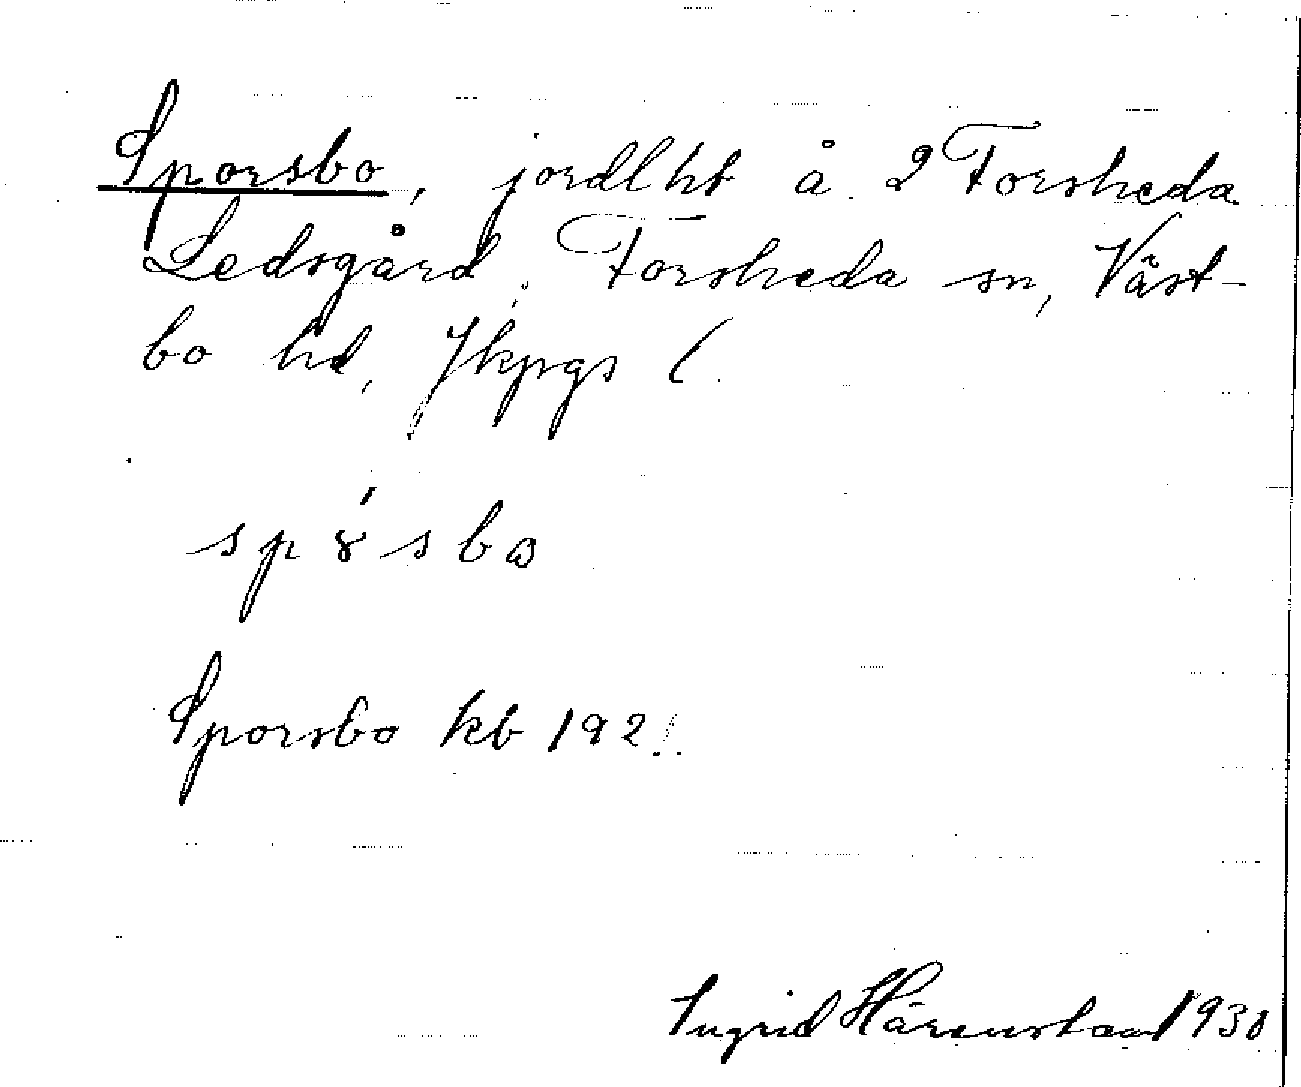 Sporsbo, jordlht å 2 Forsheda
Ledsgård, Forsheda sn, Väst-
bo hd, Jkpgs l.
Sporsbo kb 192
Ingrid 1930